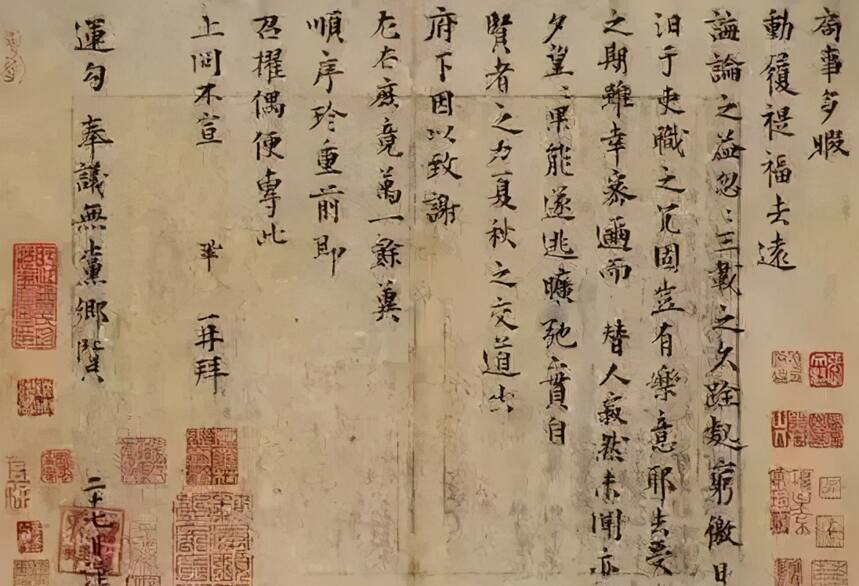 局事多暇
動履禔福去遠
誨論之益忽〻三載之久跧處窮徼日
汩于吏職之冗固豈有樂意耶去受
之期雖幸密邇而 替人寂然未聞亦
夕望〻果能遂逃曠弛實自
賢者之力夏秋之交道出
府下因以致謝
左右庶竟萬一餘冀
順序珍重前即
召擢偶便專此
上問不宣 鞏 再拜
運勾奉議無黨鄉賢 二十七日謹